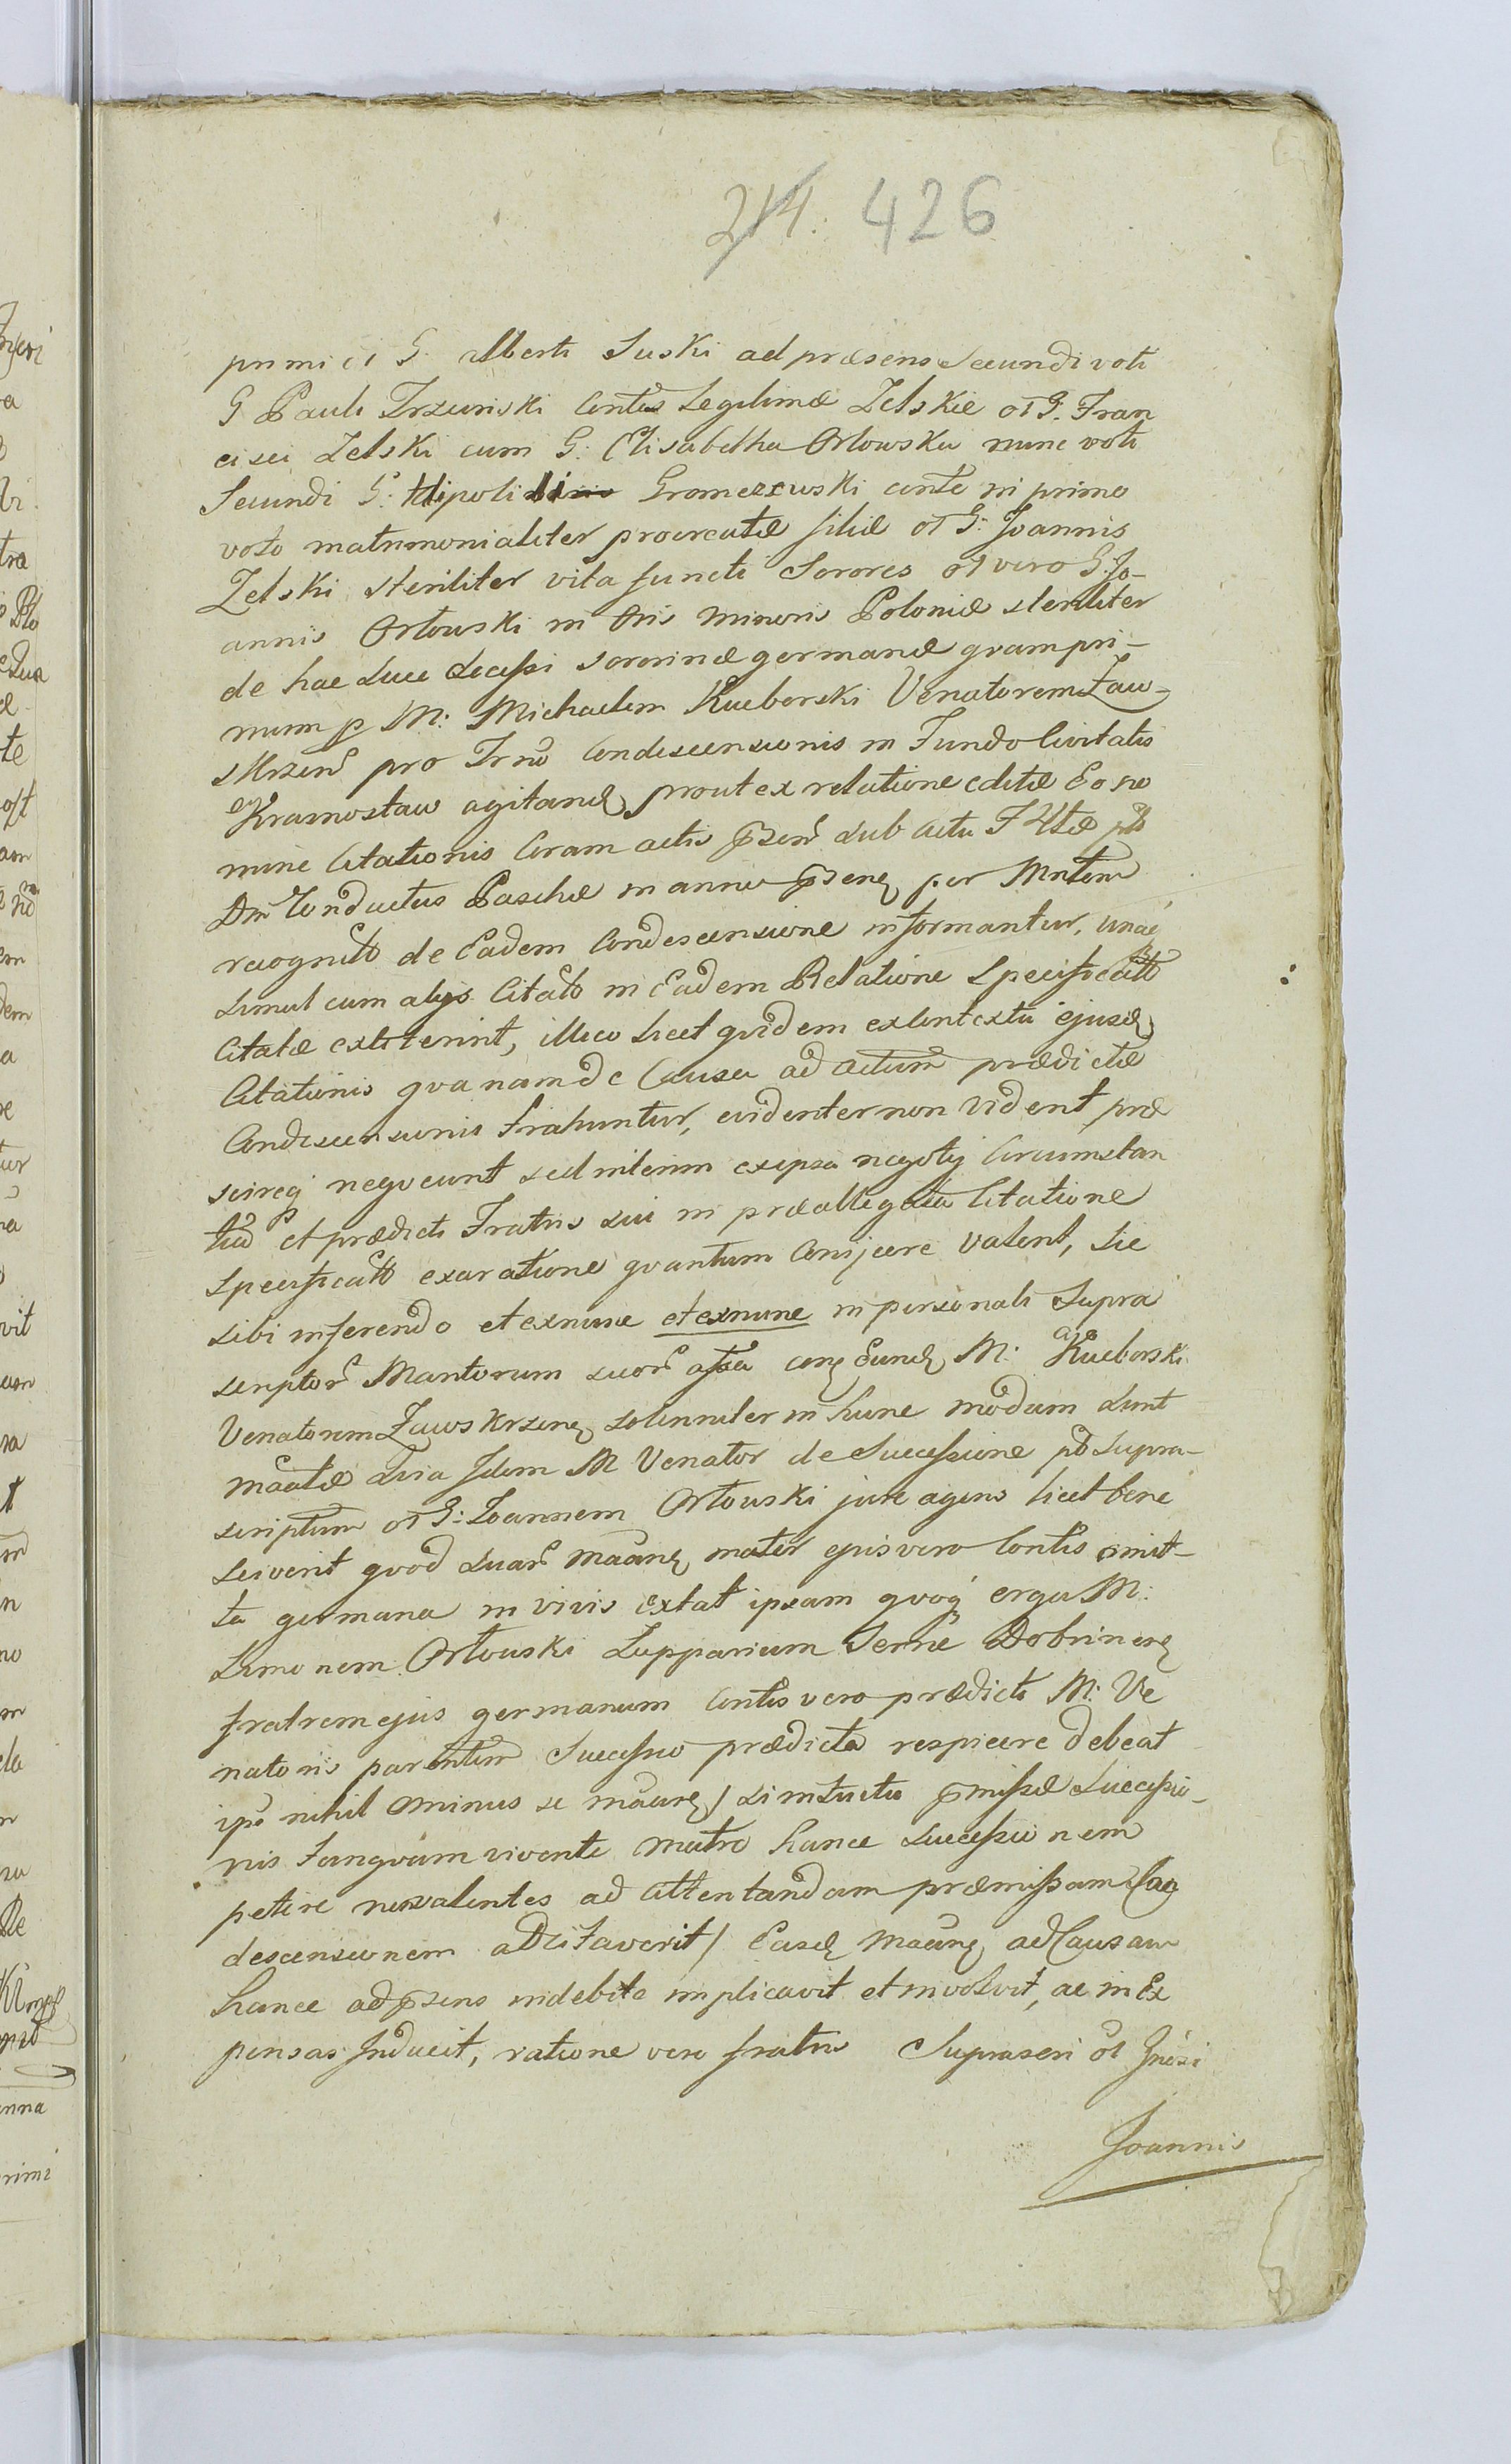 214. 426
primi ol G. Alberti Suski ad præsens Secundi voti
G Pauli Trzcinski Contes Legitimæ Zelskie ol G. Fran
cisci Zelski cum G: Elisabetha Orlowska nunc voti
Secundi G: Hipoliti Gromczewski conte in primo
voto matrimonialiter procreatæ filiæ ol G: Joannis
Zelski steriliter vita functi Sorores ol vero G: Jo-
annis Orlowski in Oris Minoris Poloniæ steriliter
de hac Luce decessi sororinæ germanæ quam pri-
mum p M: Michaelem Kucborski Venatorem Zaw-
skrzen pro Trno Condescensionis in Fundo Civitatis
Krasnostaw agitand prout ex relatione editæ Eo no
mine Citationis Coram actis pszen sub actu
Dni Conductus Paschæ in anno pszen per Mntem
recognitt de Eadem Condescensione informantur, unaq
simul cum alys Citatt in Eadem Relatione Specificatt
Citatæ extiterint, illico licet quidem ex contextu ejusd
Citationis qva nam de Causa ad actum prædictæ
Condescensionis trahuntur, evidenter non vident, præ
scireq neqveunt sed interim ex ipsa negotij Circumstan
tia et prædicti Fratris sui in præallegata Citatione
Specificatt exaratione qvantum Conijcere valent, sic
sibi inferendo et exnunc et exnunc in personali Supra
scriptor Maritorum suor assa Eund M: Kucborski
Venatorem Zawskrzen solenniter in hunc modum sunt
Qvia Idem M Venator de Successione pt supra-
scriptum ol G: Joannem Orlowski jure agens licet bene
sciverit qvod suar mater ejus vero Contis amit-
ta germana in vivis extat ipsam qvoq ergo M:
Simonem Orlowski Lupparium Terræ Dobrinen
fratrem ejus germanum Contis vero prædicti M: Ve
natoris parentem Successio prædicta respicere debeat
ipse nihil ominus se / si intuitu pmissæ Successio-
nis tanqvam vivente matre hance successionem
petere non valentes ad attentandam præmissam Con
descensionem adcitaverit / Easd ad Causam
hance ad pszens indebite implicavit et involvit, ac in Ex
pensas Inducit, ratione vero fratris Suprascri ol Gnosi
Joannis